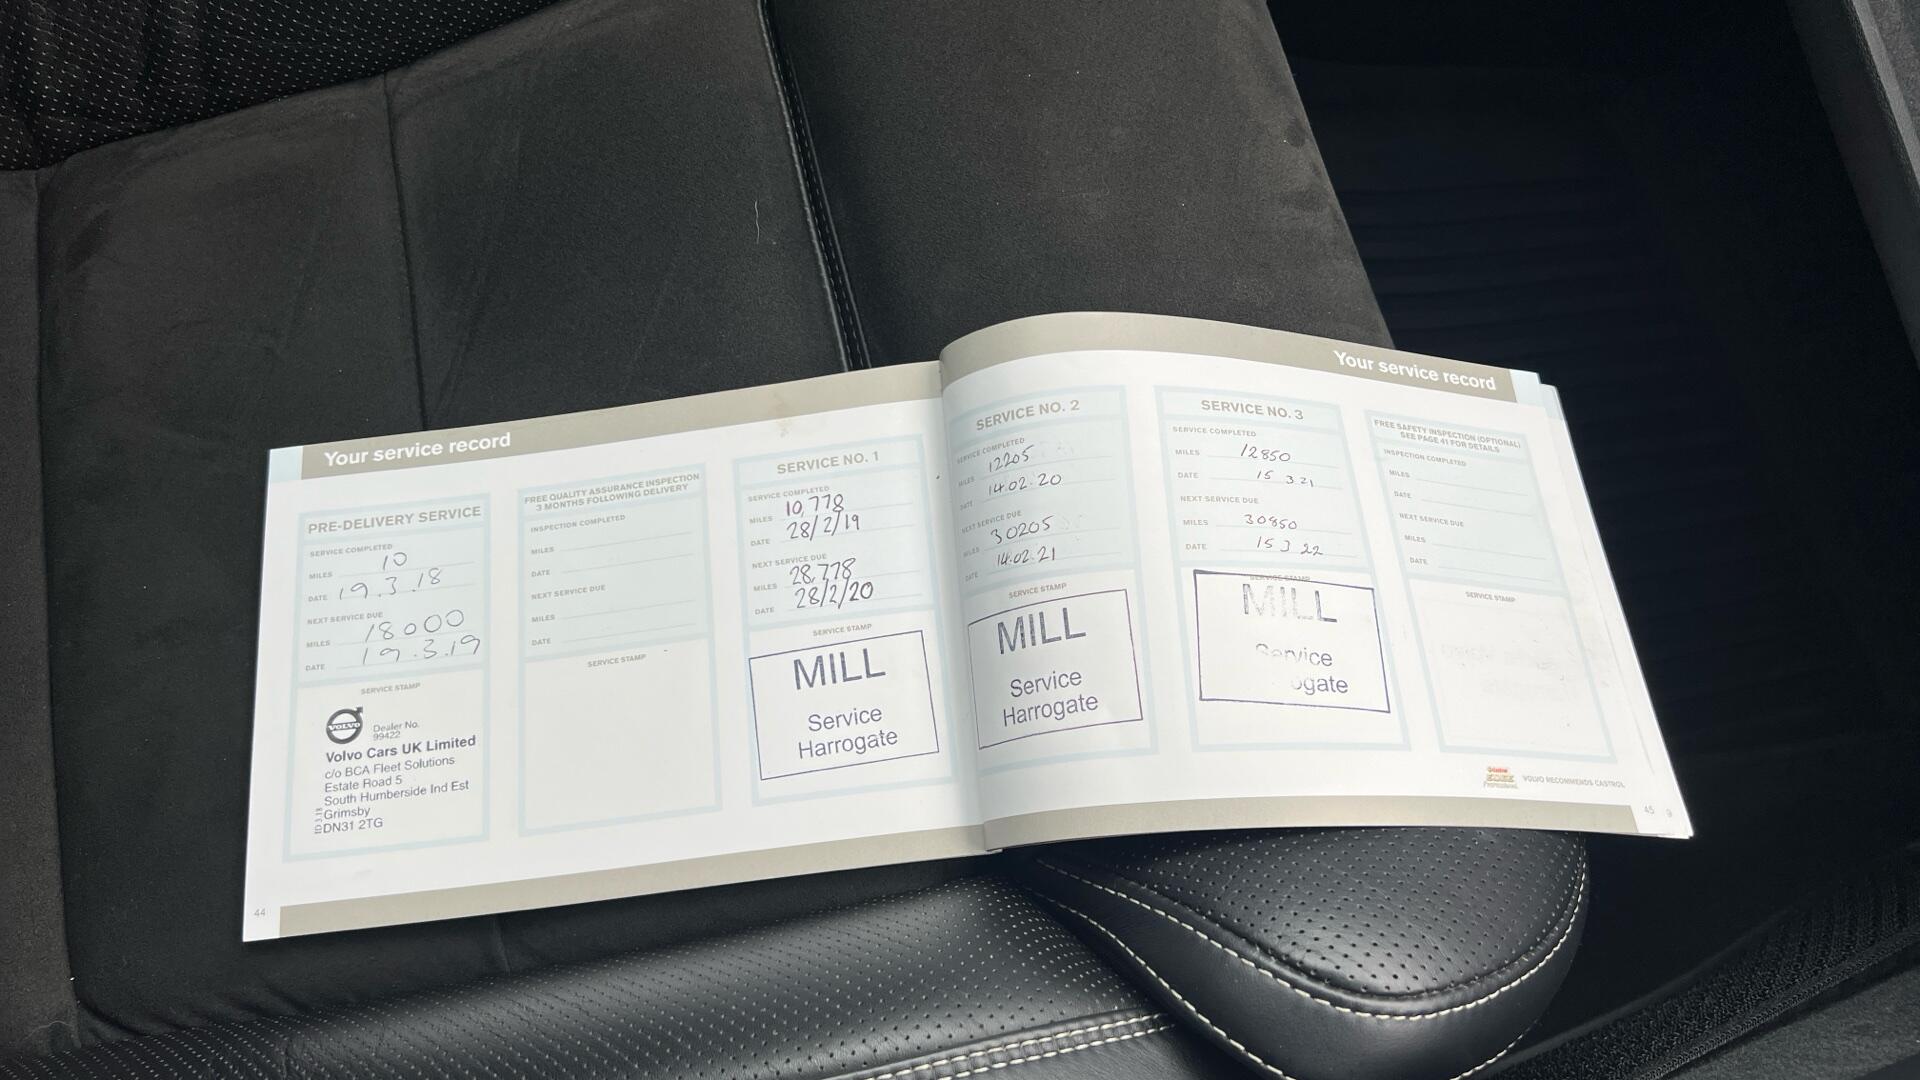 Your service record
PRE-DELIVERY SERVICE
SERVICE COMPLETED
MILES 10
DATE 19.3.18
NEXT SERVICE DUE
MILES 18000
DATE 19.3.19
SERVICE STAMP
VOLVO
Dealer No.
99422
Volvo Cars UK Limited
c/o BCA Fleet Solutions
Estate Road 5
South Humberside Ind Est
Grimsby
DN31 2TG
44
FREE QUALITY ASSURANCE INSPECTION
3 MONTHS FOLLOWING DELIVERY
INSPECTION COMPLETED
MILES
DATE
NEXT SERVICE DUE
MILES
DATE
SERVICE STAMP
SERVICE NO. 1
SERVICE COMPLETED
MILES 10,778
DATE 28/2/19
NEXT SERVICE DUE
MILES 28,778
DATE 28/2/20
SERVICE STAMP
MILL
Service
Harrogate
Your service record
SERVICE NO. 2
SERVICE COMPLETED
MILES 12205
DATE 14.02.20
NEXT SERVICE DUE
MILES 30205
DATE 14.02.21
SERVICE STAMP
MILL
Service
Harrogate
SERVICE NO. 3
SERVICE COMPLETED
MILES 12850
DATE 15 3 21
NEXT SERVICE DUE
MILES 30850
DATE 15 3 22
SERVICE STAMP
MILL
Service
ogate
FREE SAFETY INSPECTION (OPTIONAL)
SEE PAGE 41 FOR DETAILS
INSPECTION COMPLETED
MILES
DATE
NEXT SERVICE DUE
MILES
DATE
SERVICE STAMP
Castrol
EDGE
Professional
VOLVO RECOMMENDS CASTROL
45
9